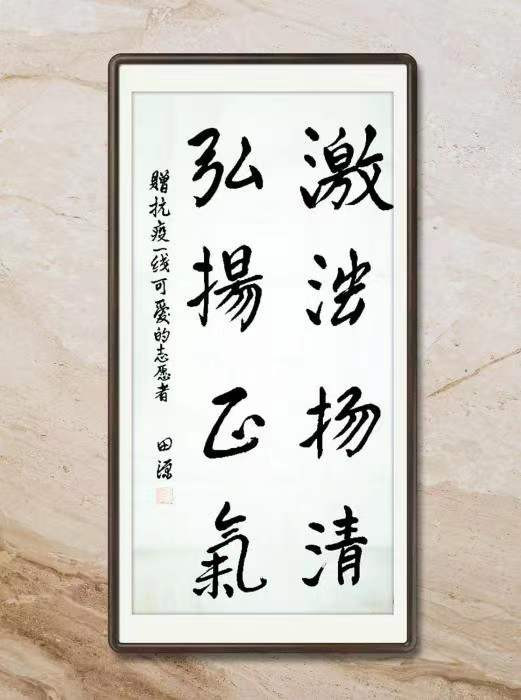 激浊扬清
弘揚正氣
贈抗疫一线可愛的志愿者
田源